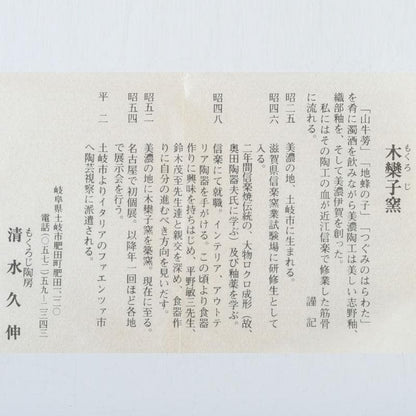 もくろじ
木欒子窯
「山牛蒡」「地蜂の子」「つぐみのはらわた」
を肴に濁酒を飲みながら美濃陶工は美しい志野釉、
織部釉を、そして美濃伊賀を創った。
私にはその陶工の血が近江信楽で修業した筋骨
に流れる。
謹記
昭二五 美濃の地、土岐市に生まれる。
昭四六 滋賀県信楽窯業試験場に研修生として
入る。
二年間信楽焼伝統の、大物ロクロ成形(故、
奥田陶器夫氏に学ぶ)及び釉薬を学ぶ。
昭四八 信楽にて就職。インテリア、アウトテ
リア陶器を手がける。この頃より食器
作りに興味を持ちはじめ、平野敏三先生、
鈴木茂至先生達と親交を深め、食器作
りに自分の進むべき方向を見いだす。
昭五二 美濃の地に木欒子窯を築窯。現在に至る。
昭五四 名古屋で初個展。以降年一回ほど各地
で展示会を行う。
平二 土岐市よりイタリアのファエンツァ市
へ陶芸視察に派遣される。
岐阜県土岐市肥田町肥田二二〇
電話(〇五七二)五九-三二四三
もくろじ陶房
清水久伸